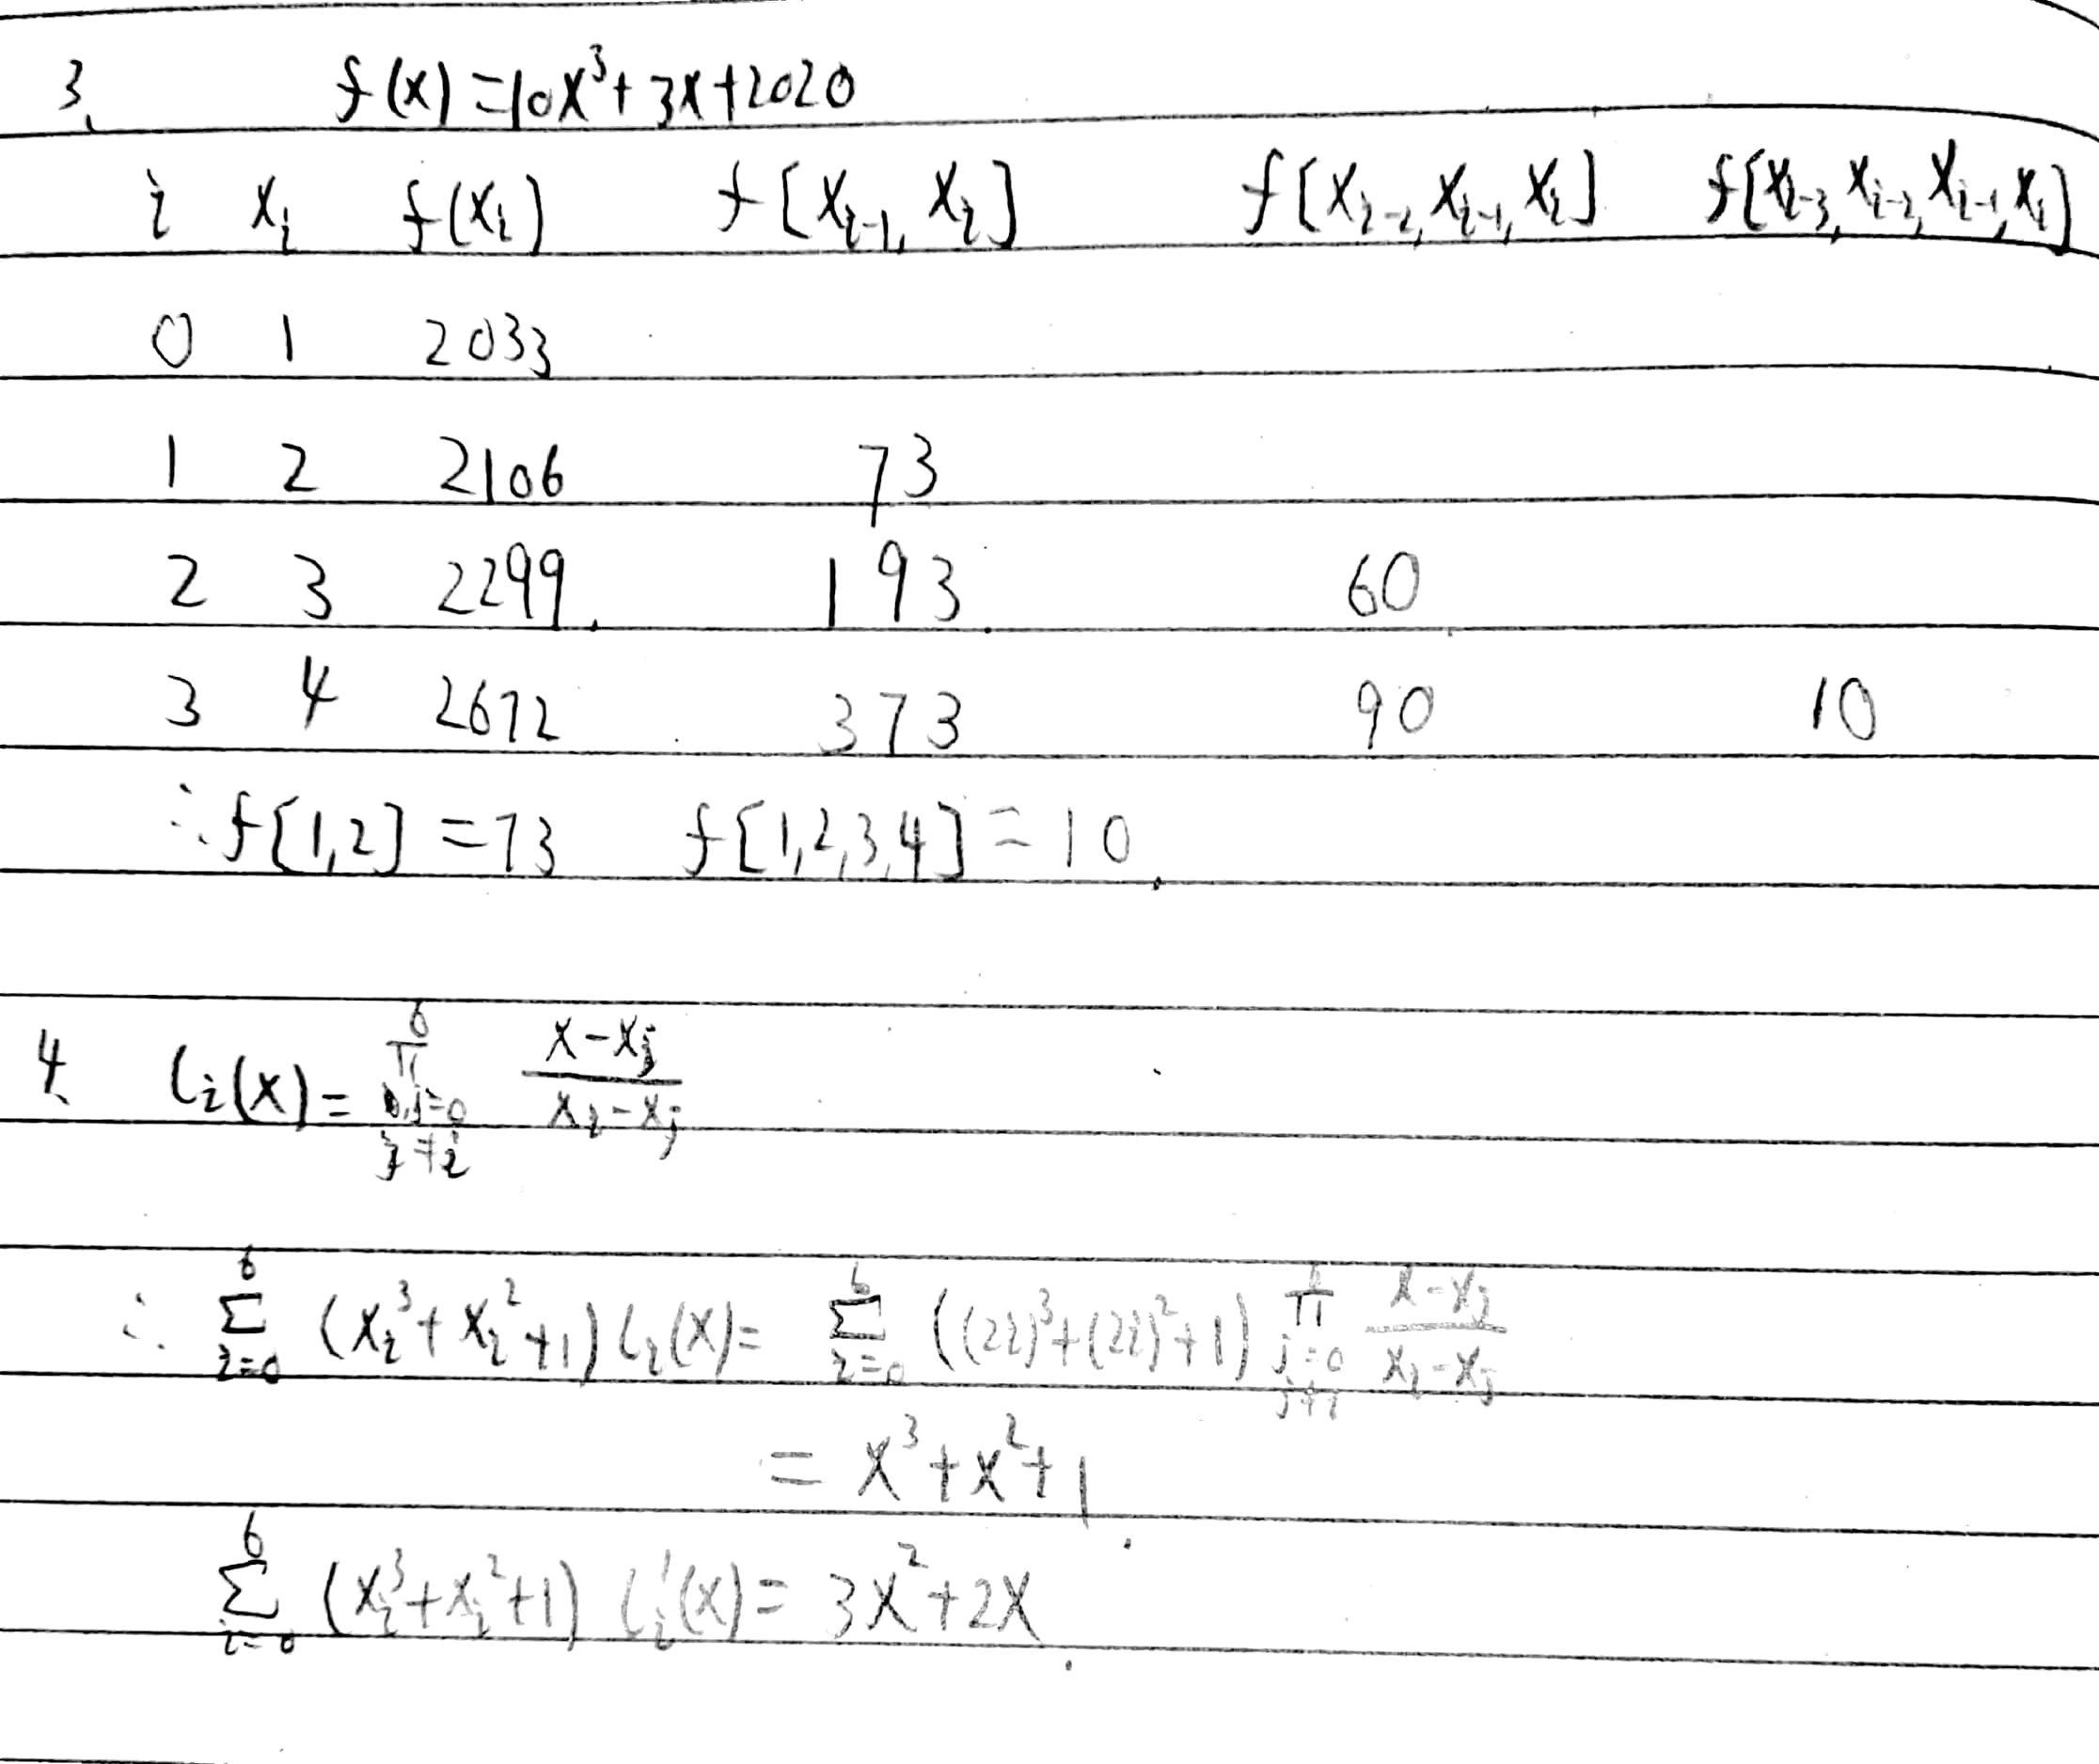 3、 f(x)=10x³+3x+2020
i x_i f(x_i) f[x_{i-1}, x_i] f[x_{i-2}, x_{i-1}, x_i] f[x_{i-3}, x_{i-2}, x_{i-1}, x_i]
0 1 2033
1 2 2106 73
2 3 2299 193 60
3 4 2672 373 90 10
∴ f[1,2] = 73 f[1,2,3,4] = 10
4、 l_i(x) = ∏_{j=0, j≠i}^{6} (x-x_j)/(x_i-x_j)
∴ ∑_{i=0}^{6} (x_i³+x_i²+1) l_i(x) = ∑_{i=0}^{6} ((2i)³+(2i)²+1) ∏_{j=0, j≠i}^{6} (x-x_j)/(x_i-x_j)
= x³+x²+1
∑_{i=0}^{6} (x_i³+x_i²+1) l_i'(x) = 3x²+2x